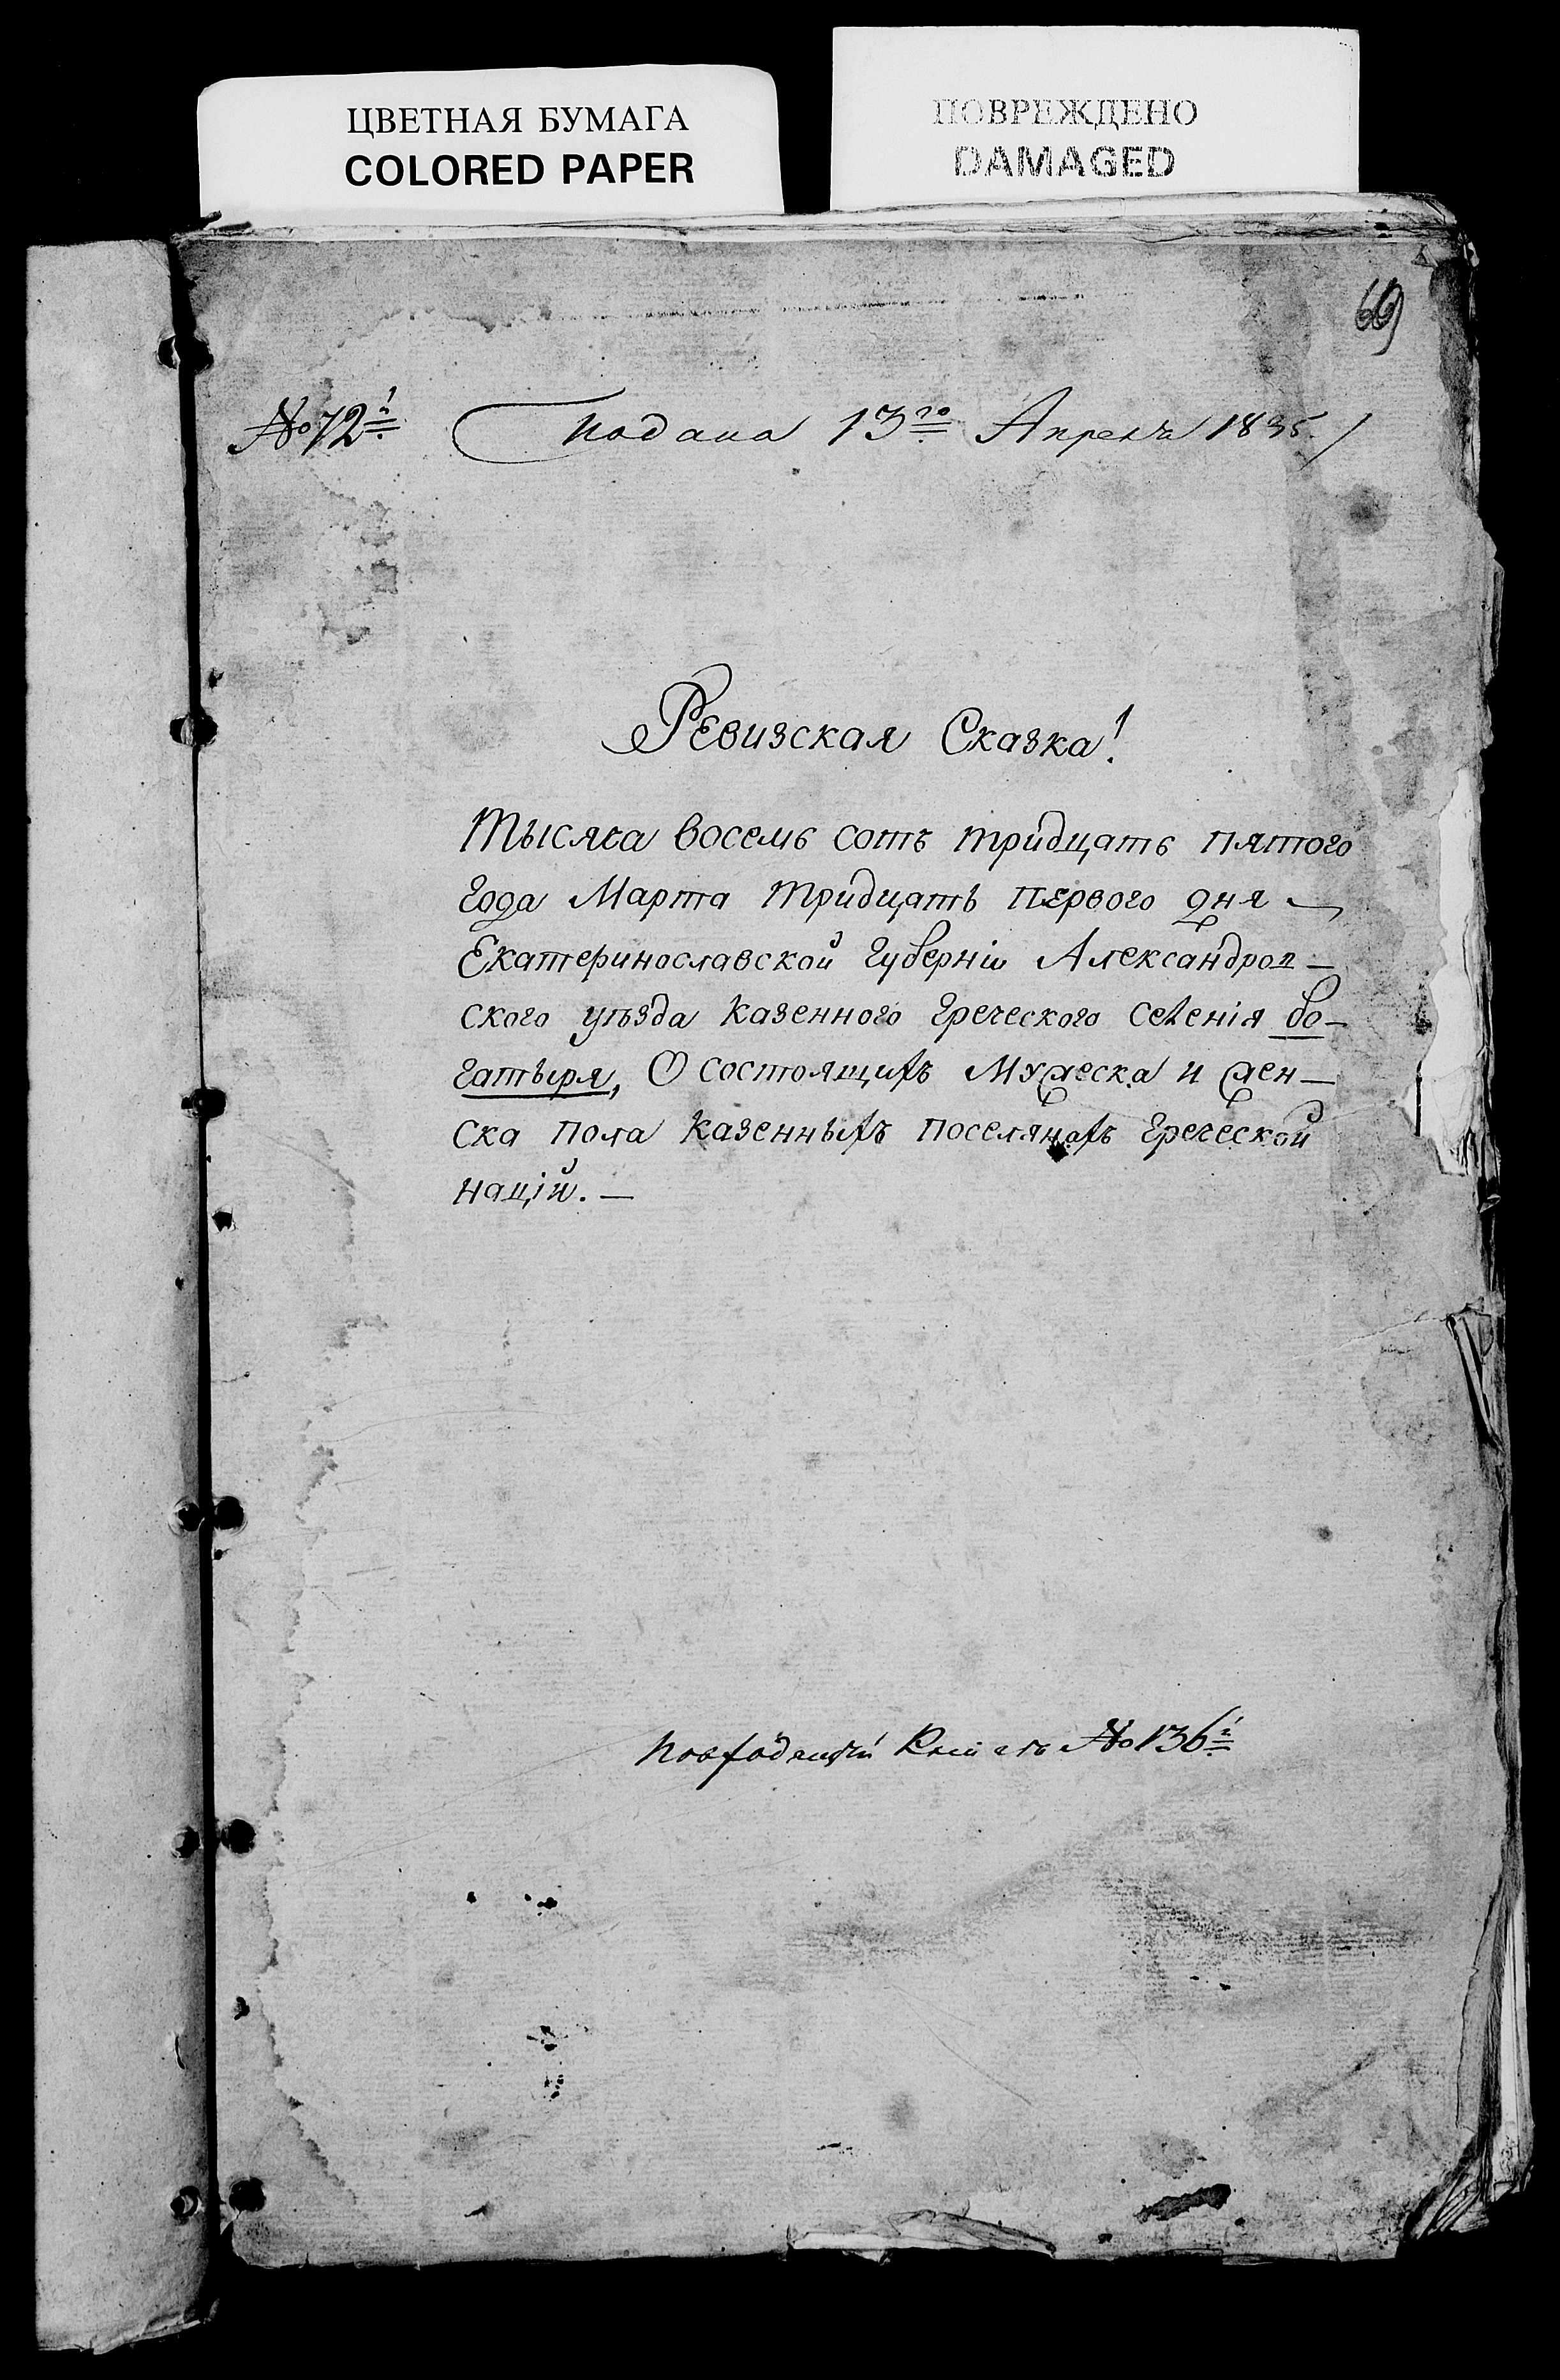 ЦВЕТНАЯ БУМАГА
COLORED PAPER
ПОВРЕЖДЕНО
DAMAGED
69
№ 72й Подана 13го Апреля 1835.
Ревизская Сказка!
Тысяча восемь сотъ тридцать пятого
года Марта тридцать первого дня —
Екатеринославской Губерніи Александров-
ского уѣзда казенного греческого селенія Бо-
гатыря, О состоящихъ мужеска и жен-
ска пола казенныхъ поселянахъ греческой
націй. —
По входящей Книгѣ № 136й